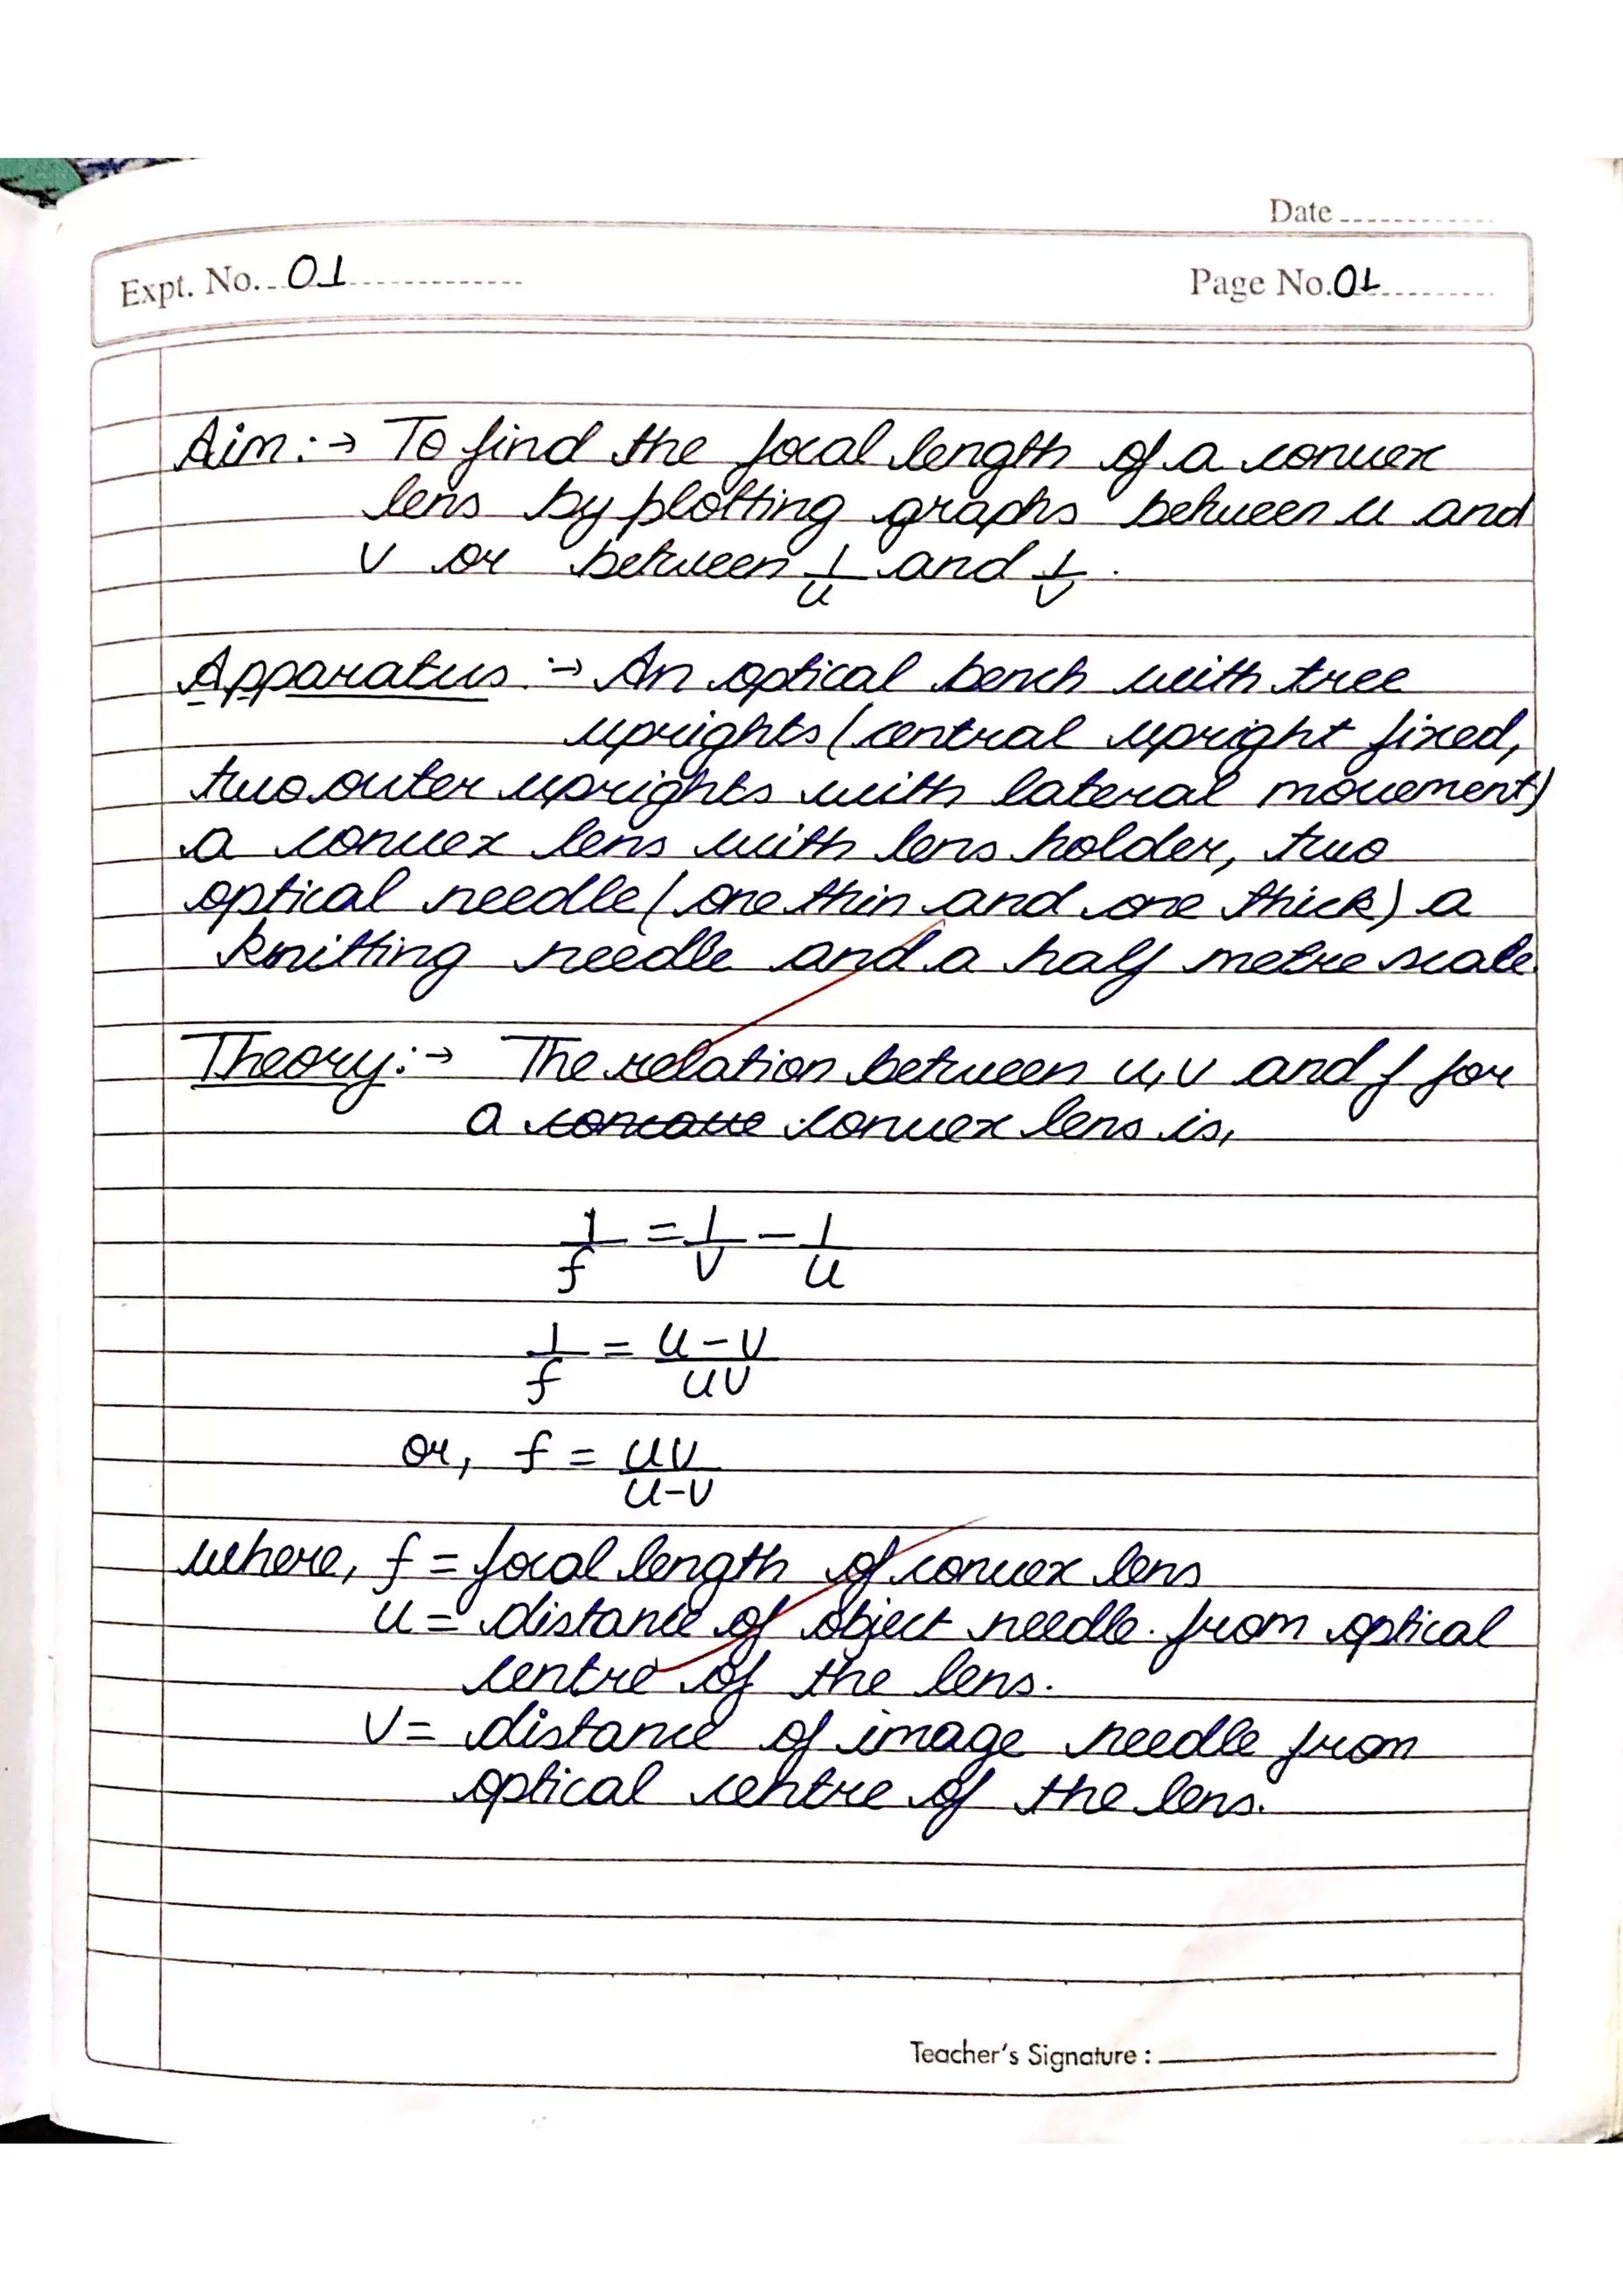 Date
Expt. No. 01
Page No. 01
Aim :→ To find the focal length of a convex
lens by plotting graphs between u and
v or between 1/u and 1/v .
Apparatus :→ An optical bench with tree
uprights (central upright fixed,
two outer uprights with lateral movement)
a convex lens with lens holder, two
optical needle (one thin and one thick) a
knitting needle and a half metre scale.
Theory :→ The relation between u, v and f for
a ~~concave~~ convex lens is,
1/f = 1/v - 1/u
1/f = u-v/uv
or, f = uv/u-v
where, f = focal length of convex lens
u = distance of object needle. from optical
centre of the lens.
v = distance of image needle from
optical centre of the lens.
Teacher's Signature :